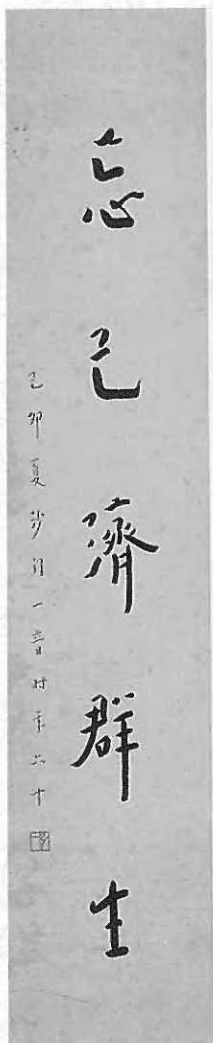 忘己濟群生
己卯夏沙門一音時年六十